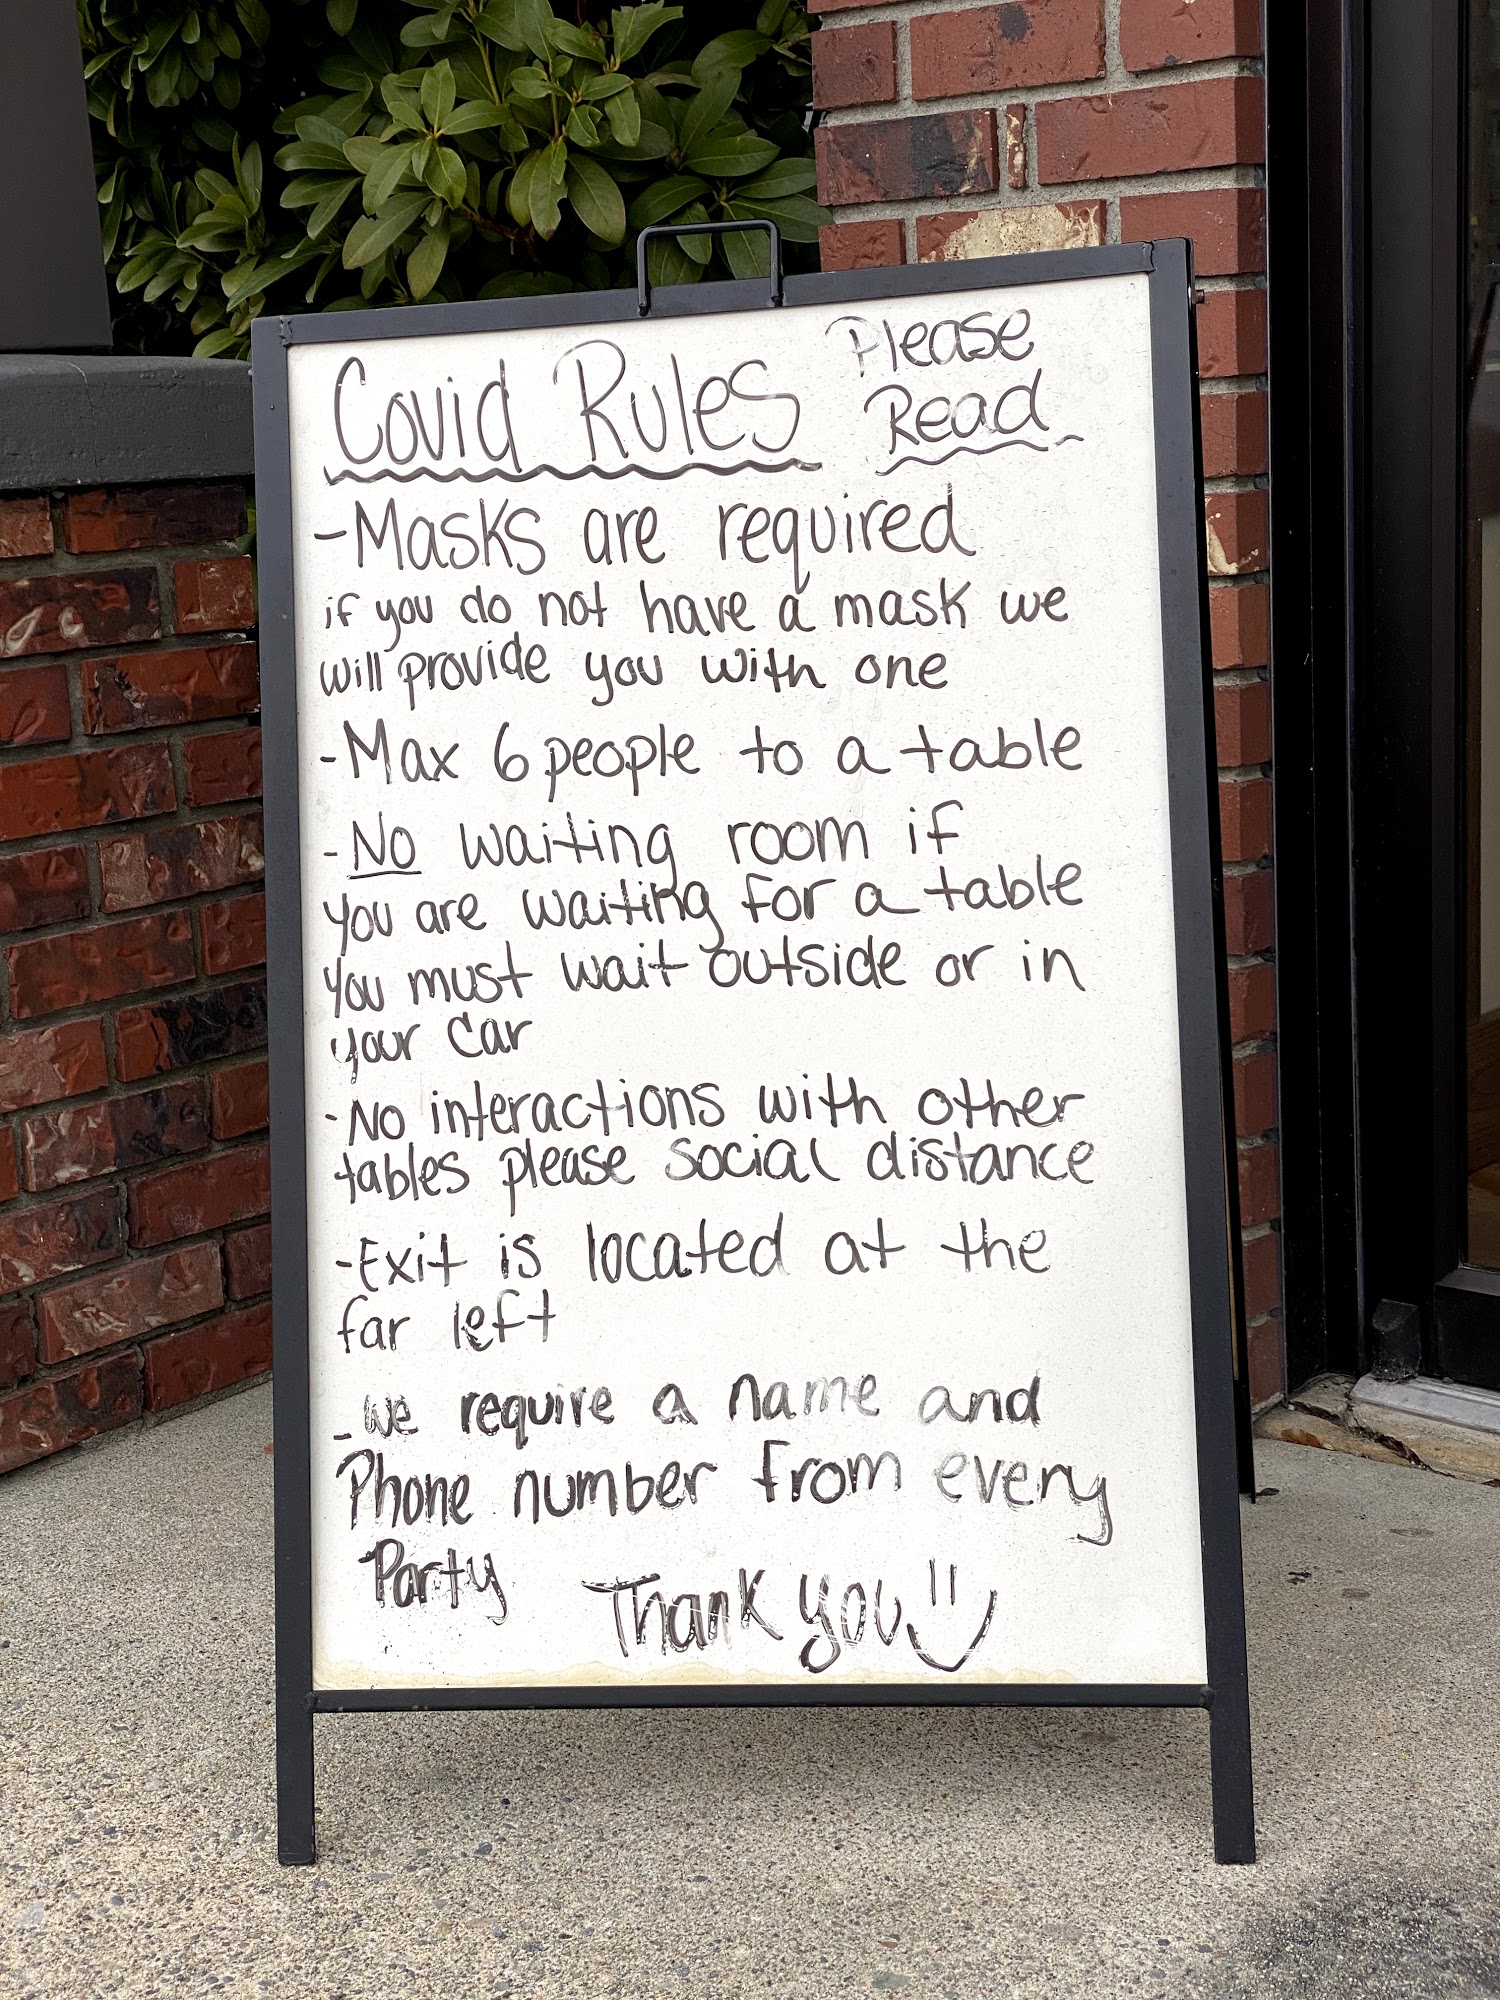 Covid Rules Please Read
-Masks are required
if you do not have a mask we
will provide you with one
-Max 6 people to a table
-No waiting room if
you are waiting for a table
you must wait outside or in
your car
-No interactions with other
tables please social distance
-Exit is located at the
far left
-we require a name and
Phone number from every
Party
Thank you